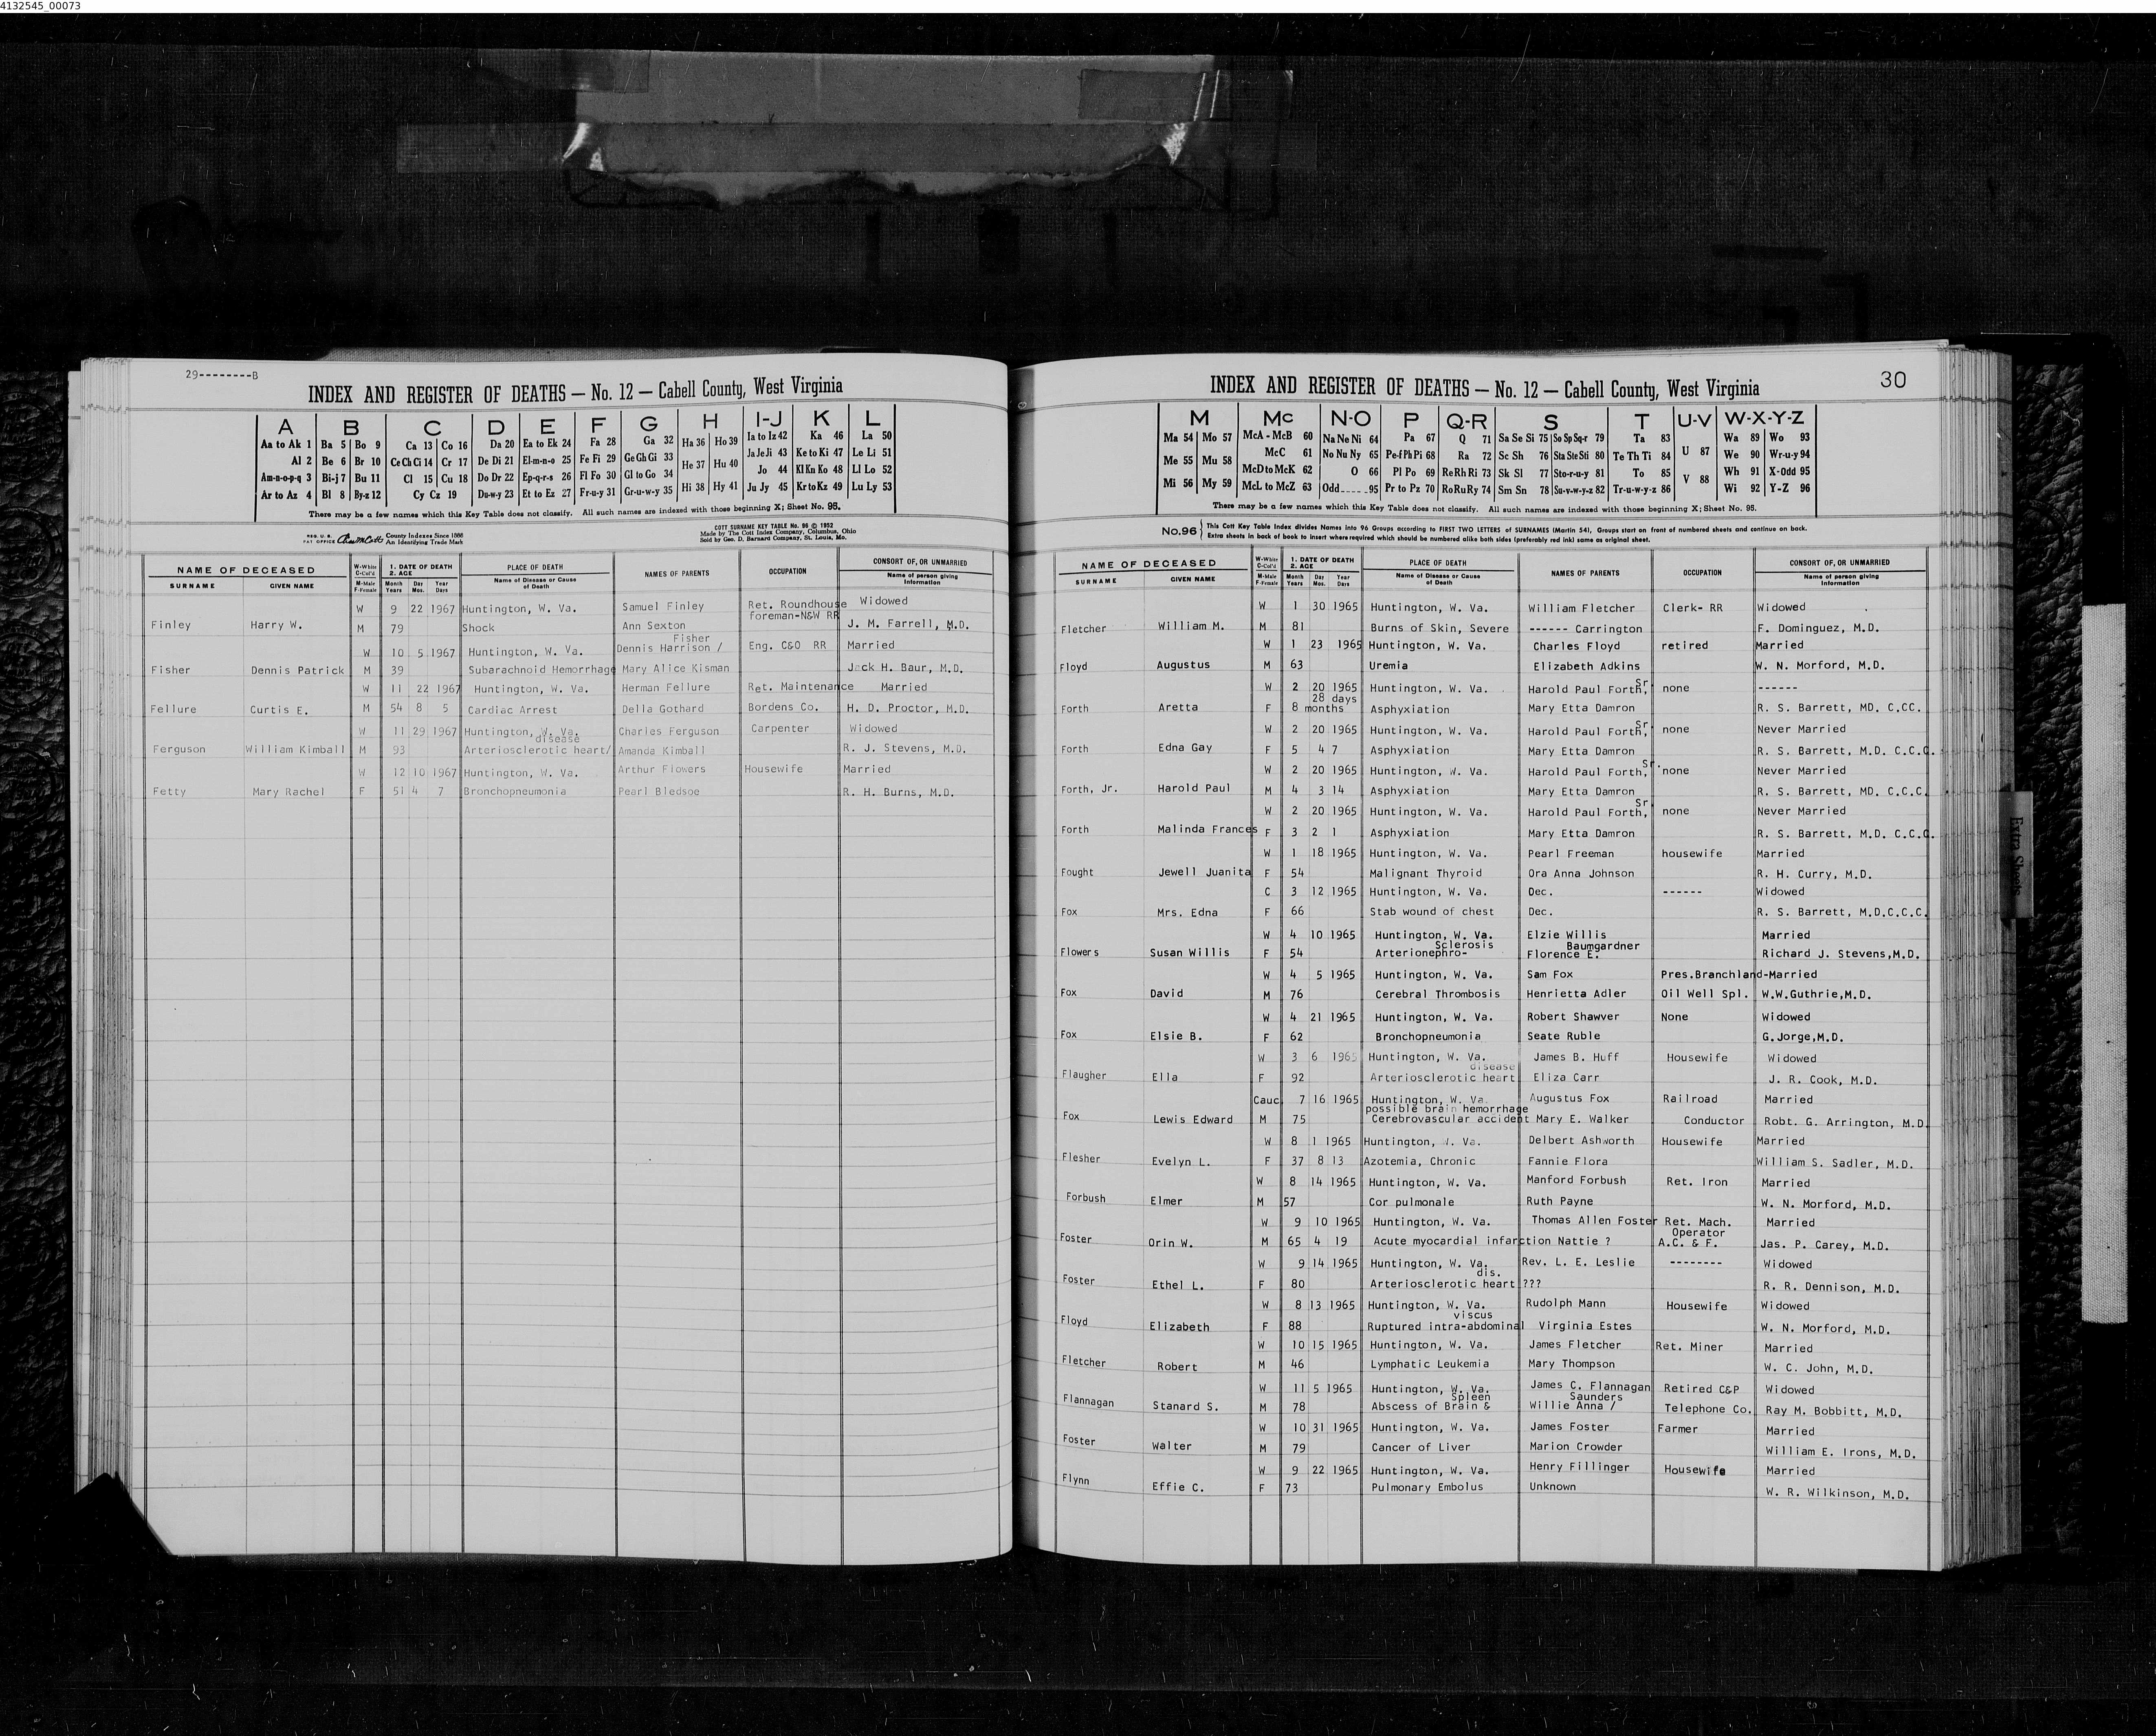 4132545_00073
29--------B
INDEX AND REGISTER OF DEATHS — No. 12 — Cabell County, West Virginia
A B C D E F G H I-J K L
Aa to Ak 1 Ba 5 Bo 9 Ca 13 Co 16 Da 20 Ea to Ek 24 Fa 28 Ga 32 Ha 36 Ho 39 Ia to Iz 42 Ka 46 La 50
Al 2 Be 6 Br 10 Ce Ch Ci 14 Cr 17 De Di 21 El-m-n-o 25 Fe Fi 29 Ge Gh Gi 33 He 37 Hu 40 Ja Je Ji 43 Ke to Ki 47 Le Li 51
Am-n-o-p-q 3 Bi-j 7 Bu 11 Cl 15 Cu 18 Do Dr 22 Ep-q-r-s 26 Fl Fo 30 Gl to Go 34 Jo 44 Kl Kn Ko 48 Ll Lo 52
Ar to Az 4 Bl 8 By-z 12 Cy Cz 19 Du-w-y 23 Et to Ez 27 Fr-u-y 31 Gr-u-w-y 35 Hi 38 Hy 41 Ju Jy 45 Kr to Kz 49 Lu Ly 53
There may be a few names which this Key Table does not classify. All such names are indexed with those beginning X; Sheet No. 95.
REG. U. S. PAT OFFICE County Indexes Since 1888 An Identifying Trade Mark
COTT SURNAME KEY TABLE No. 96 © 1952
Made by The Cott Index Company, Columbus, Ohio
Sold by Geo. D. Barnard Company, St. Louis, Mo.
NAME OF DECEASED W-White C-Col'd 1. DATE OF DEATH 2. AGE PLACE OF DEATH NAMES OF PARENTS OCCUPATION CONSORT OF, OR UNMARRIED
SURNAME GIVEN NAME M-Male F-Female Month Years Day Mos. Year Days Name of Disease or Cause of Death Name of person giving Information
W 9 22 1967 Huntington, W. Va. Samuel Finley Ret. Roundhouse foreman-N&W RR Widowed
Finley Harry W. M 79 Shock Ann Sexton J. M. Farrell, M.D.
W 10 5 1967 Huntington, W. Va. Dennis Harrison / Fisher Eng. C&O RR Married
Fisher Dennis Patrick M 39 Subarachnoid Hemorrhage Mary Alice Kisman Jack H. Baur, M.D.
W 11 22 1967 Huntington, W. Va. Herman Fellure Ret. Maintenance Married
Fellure Curtis E. M 54 8 5 Cardiac Arrest Della Gothard Bordens Co. H. D. Proctor, M.D.
W 11 29 1967 Huntington, W. Va. Charles Ferguson Carpenter Widowed
Ferguson William Kimball M 93 Arteriosclerotic heart/ disease Amanda Kimball R. J. Stevens, M.D.
W 12 10 1967 Huntington, W. Va. Arthur Flowers Housewife Married
Fetty Mary Rachel F 51 4 7 Bronchopneumonia Pearl Bledsoe R. H. Burns, M.D.
30
INDEX AND REGISTER OF DEATHS — No. 12 — Cabell County, West Virginia
M Mc N-O P Q-R S T U-V W-X-Y-Z
Ma 54 Mo 57 McA - McB 60 Na Ne Ni 64 Pa 67 Q 71 Sa Se Si 75 So Sp Sq-r 79 Ta 83 U 87 Wa 89 Wo 93
Me 55 Mu 58 McC 61 No Nu Ny 65 Pe-f Ph Pi 68 Ra 72 Sc Sh 76 Sta Ste Sti 80 Te Th Ti 84 We 90 Wr-u-y 94
McD to McK 62 O 66 Pl Po 69 Re Rh Ri 73 Sk Sl 77 Sto-r-u-y 81 To 85 V 88 Wh 91 X-Odd 95
Mi 56 My 59 McL to McZ 63 Odd-----95 Pr to Pz 70 Ro Ru Ry 74 Sm Sn 78 Su-v-w-y-z 82 Tr-u-w-y-z 86 Wi 92 Y-Z 96
There may be a few names which this Key Table does not classify. All such names are indexed with those beginning X; Sheet No. 95.
No. 96 This Cott Key Table Index divides Names into 96 Groups according to FIRST TWO LETTERS of SURNAMES (Martin 54), Groups start on front of numbered sheets and continue on back.
Extra sheets in back of book to insert where required which should be numbered alike both sides (preferably red ink) same as original sheet.
NAME OF DECEASED W-White C-Col'd 1. DATE OF DEATH 2. AGE PLACE OF DEATH NAMES OF PARENTS OCCUPATION CONSORT OF, OR UNMARRIED
SURNAME GIVEN NAME M-Male F-Female Month Years Day Mos. Year Days Name of Disease or Cause of Death Name of person giving Information
W 1 30 1965 Huntington, W. Va. William Fletcher Clerk- RR Widowed
Fletcher William M. M 81 Burns of Skin, Severe ------ Carrington F. Dominguez, M.D.
W 1 23 1965 Huntington, W. Va. Charles Floyd retired Married
Floyd Augustus M 63 Uremia Elizabeth Adkins W. N. Morford, M.D.
W 2 20 1965 Huntington, W. Va. Harold Paul Forth, Sr. none ------
Forth Aretta F 8 months 28 days Asphyxiation Mary Etta Damron R. S. Barrett, MD. C.CC.
W 2 20 1965 Huntington, W. Va. Harold Paul Forth, Sr. none Never Married
Forth Edna Gay F 5 4 7 Asphyxiation Mary Etta Damron R. S. Barrett, M.D. C.C.C.
W 2 20 1965 Huntington, W. Va. Harold Paul Forth, Sr. none Never Married
Forth, Jr. Harold Paul M 4 3 14 Asphyxiation Mary Etta Damron R. S. Barrett, MD. C.C.C.
W 2 20 1965 Huntington, W. Va. Harold Paul Forth, Sr. none Never Married
Forth Malinda Frances F 3 2 1 Asphyxiation Mary Etta Damron R. S. Barrett, M.D. C.C.C.
W 1 18 1965 Huntington, W. Va. Pearl Freeman housewife Married
Fought Jewell Juanita F 54 Malignant Thyroid Ora Anna Johnson R. H. Curry, M.D.
C 3 12 1965 Huntington, W. Va. Dec. ------ Widowed
Fox Mrs. Edna F 66 Stab wound of chest Dec. R. S. Barrett, M.D.C.C.C.
W 4 10 1965 Huntington, W. Va. Elzie Willis Married
Flowers Susan Willis F 54 Arterionephro- Sclerosis Florence E. Baumgardner Richard J. Stevens,M.D.
W 4 5 1965 Huntington, W. Va. Sam Fox Pres.Branchland-Married
Fox David M 76 Cerebral Thrombosis Henrietta Adler Oil Well Spl. W.W.Guthrie,M.D.
W 4 21 1965 Huntington, W. Va. Robert Shawver None Widowed
Fox Elsie B. F 62 Bronchopneumonia Seate Ruble G.Jorge,M.D.
W 3 6 1965 Huntington, W. Va. James B. Huff Housewife Widowed
Flaugher Ella F 92 Arteriosclerotic heart disease Eliza Carr J. R. Cook, M.D.
Cauc. 7 16 1965 Huntington, W. Va. Augustus Fox Railroad Married
possible brain hemorrhage
Fox Lewis Edward M 75 Cerebrovascular accident Mary E. Walker Conductor Robt. G. Arrington, M.D.
W 8 1 1965 Huntington, W. Va. Delbert Ashworth Housewife Married
Flesher Evelyn L. F 37 8 13 Azotemia, Chronic Fannie Flora William S. Sadler, M.D.
W 8 14 1965 Huntington, W. Va. Manford Forbush Ret. Iron Married
Forbush Elmer M 57 Cor pulmonale Ruth Payne W. N. Morford, M.D.
W 9 10 1965 Huntington, W. Va. Thomas Allen Foster Ret. Mach. Operator Married
Foster Orin W. M 65 4 19 Acute myocardial infarction Nattie ? A.C. & F. Jas. P. Carey, M.D.
W 9 14 1965 Huntington, W. Va. Rev. L. E. Leslie -------- Widowed
Foster Ethel L. F 80 Arteriosclerotic heart dis. ??? R. R. Dennison, M.D.
W 8 13 1965 Huntington, W. Va. Rudolph Mann Housewife Widowed
Floyd Elizabeth F 88 Ruptured intra-abdominal viscus Virginia Estes W. N. Morford, M.D.
W 10 15 1965 Huntington, W. Va. James Fletcher Ret. Miner Married
Fletcher Robert M 46 Lymphatic Leukemia Mary Thompson W. C. John, M.D.
W 11 5 1965 Huntington, W. Va. James C. Flannagan Retired C&P Widowed
Flannagan Stanard S. M 78 Abscess of Brain & Spleen Willie Anna / Saunders Telephone Co. Ray M. Bobbitt, M.D.
W 10 31 1965 Huntington, W. Va. James Foster Farmer Married
Foster Walter M 79 Cancer of Liver Marion Crowder William E. Irons, M.D.
W 9 22 1965 Huntington, W. Va. Henry Fillinger Housewife Married
Flynn Effie C. F 73 Pulmonary Embolus Unknown W. R. Wilkinson, M.D.
Extra Sheets